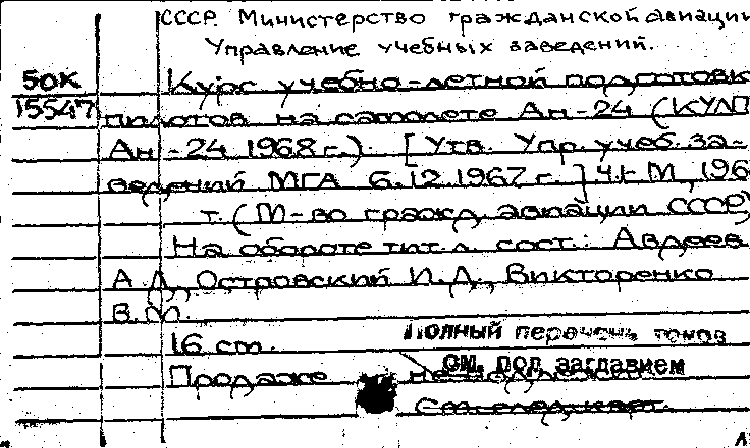 СССР. Министерство гражданской авиации
Управление учебных заведений.
50К Курс учебно-летной подготовк
15547 пилотов на самолете Ан-24 (КУЛП
Ан-24 1968 г.). [Утв. Упр. учеб. за-
ведений МГА 6.12.1967 г.] Ч.1- М., 196
т. (М-во гражд. авиации СССР)
На обороте тит. л. сост.: Авдеев
А.Д., Островский И.Д., Викторенко
В.М.
16 см. Полный перечень томов
см. под заглавием
Продаже не подлежит
См. след. карт.